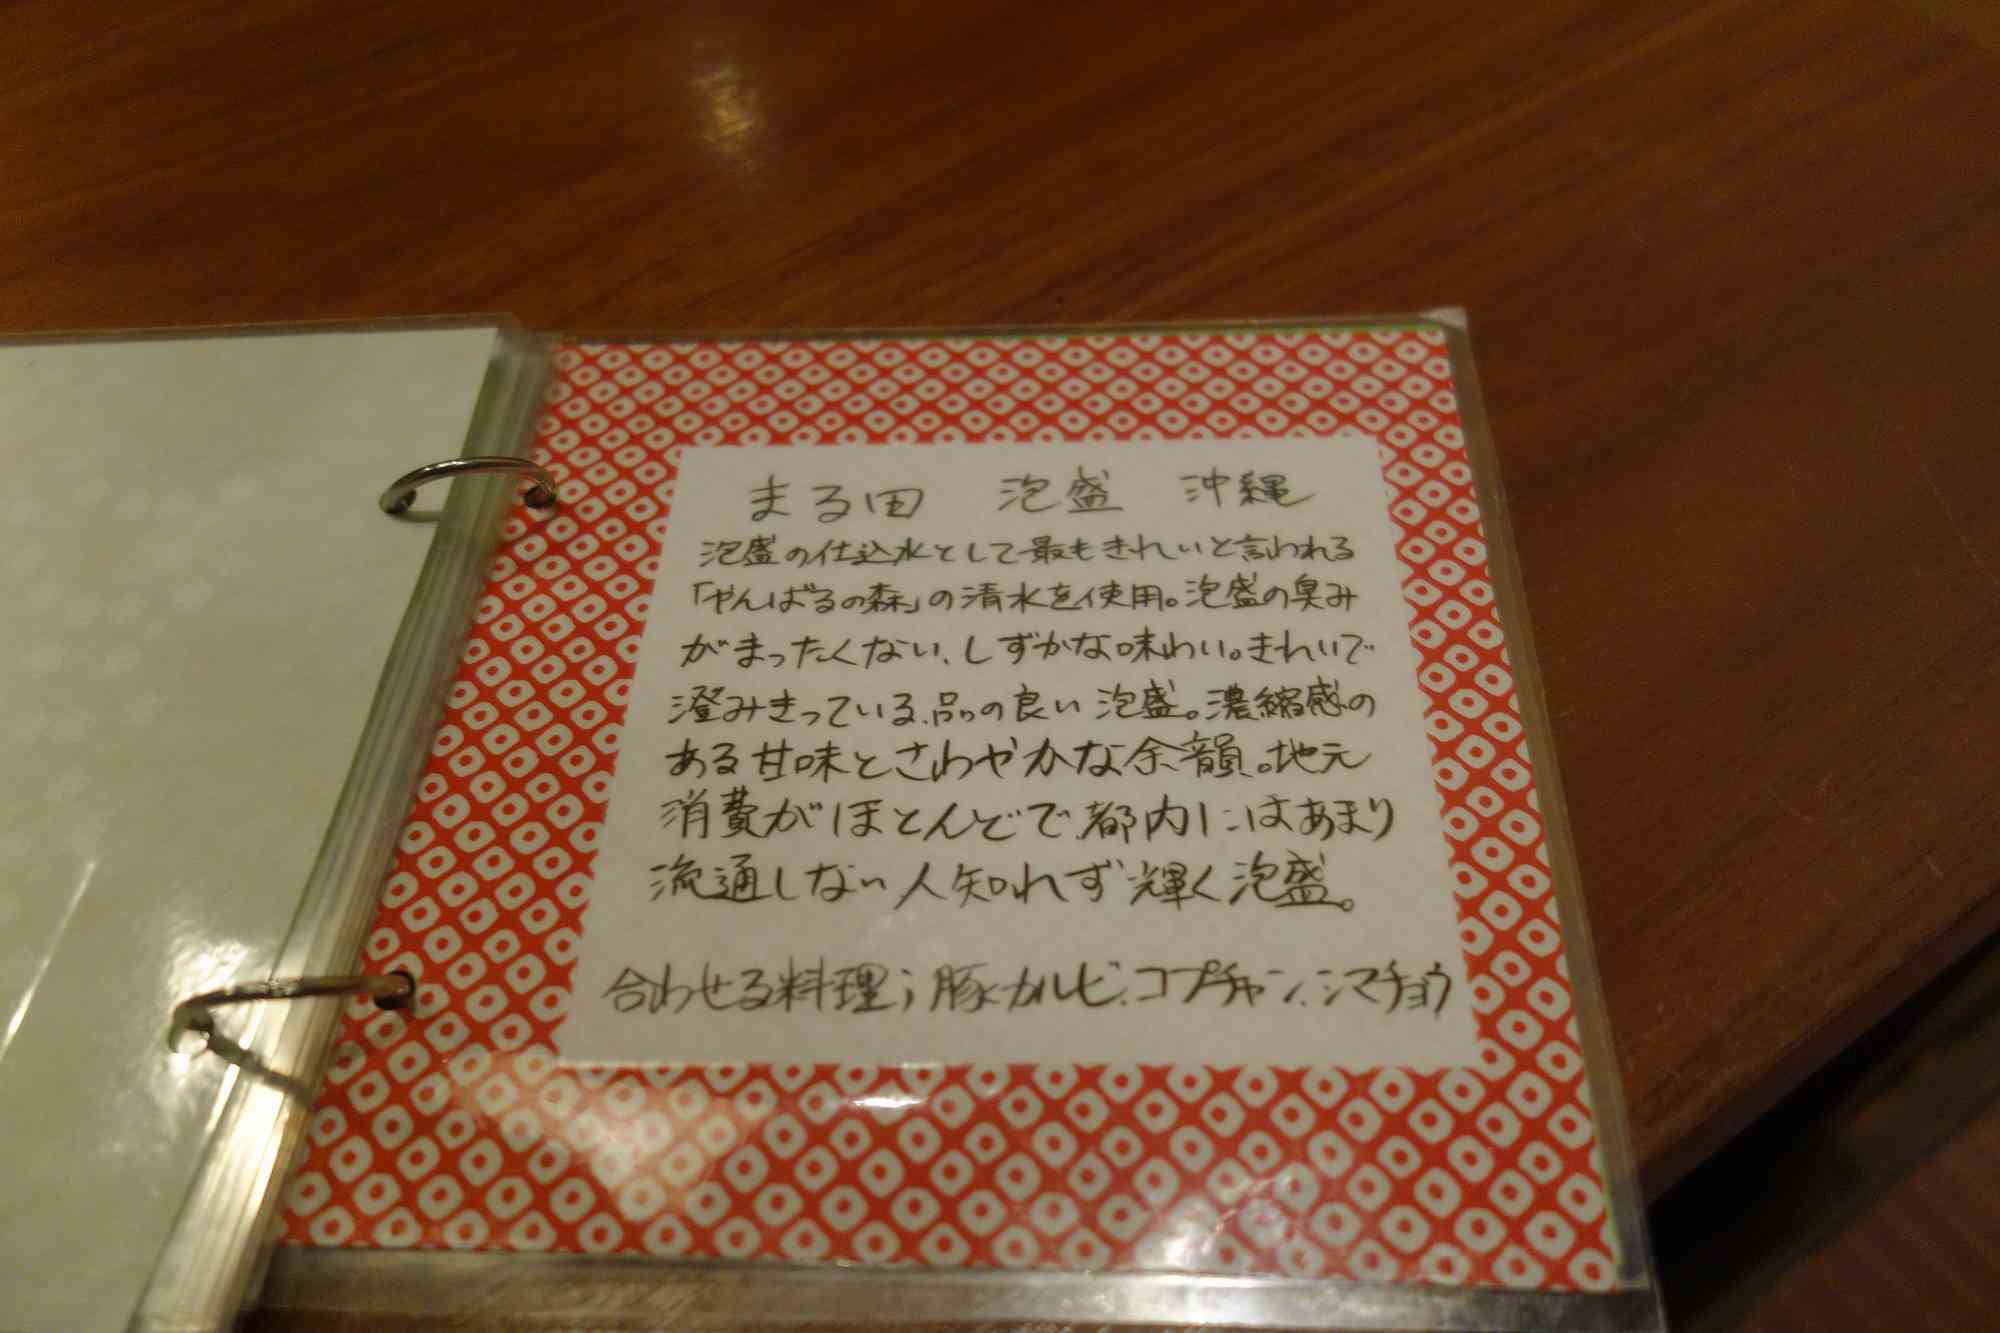 まる田 泡盛 沖縄
泡盛の仕込水として最もきれいと言われる
「やんばるの森」の清水を使用。泡盛の臭み
がまったくない、しずかな味わい。きれいで
澄みきっている、品の良い泡盛。濃縮感の
ある甘味とさわやかな余韻。地元
消費がほとんどで、都内にはあまり
流通しない人知れず輝く泡盛。
合わせる料理；豚カルビ、コプチャン、シマチョウ